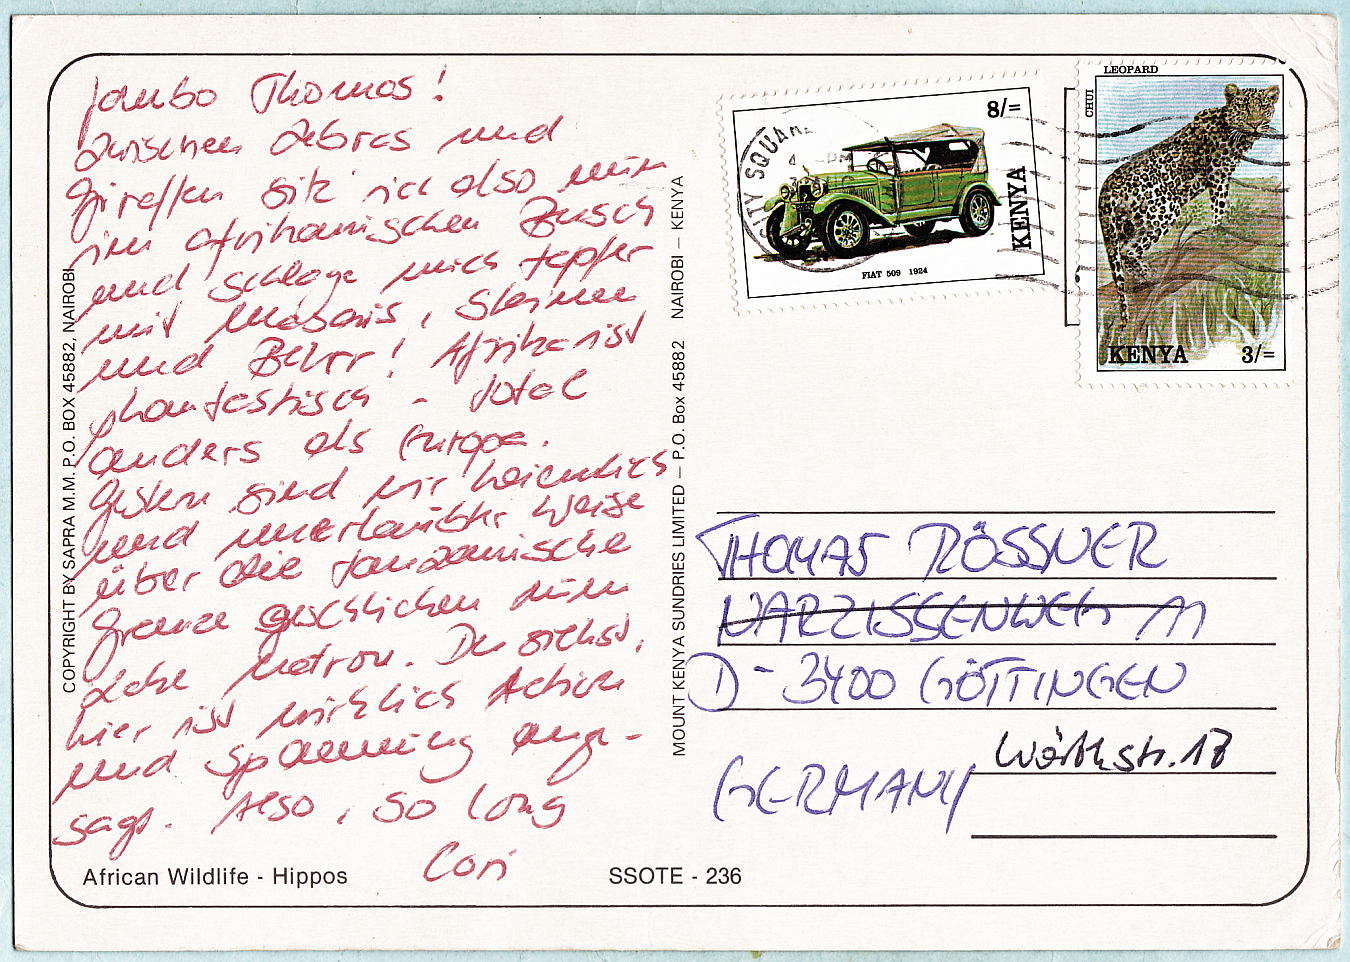 Jambo Thomas!
Zwischen Zebras und
Giraffen sitz ich also nun
im afrikanischen Busch
und schlage mich tapfer
mit Masais, Steinen
und Brrr! Afrika ist
phantastisch - total
anders als Europa.
Gestern sind wir heimlich
und unerlaubter Weise
über die tanzanische
Grenze geschlichen zum
Lake Natron. Du siehst,
hier ist wirklich Action
und Spannung ange-
sagt. Also, so long
Cori
African Wildlife - Hippos
SSOTE - 236
COPYRIGHT BY SAPRA M.M. P.O. BOX 45882, NAIROBI
MOUNT KENYA SUNDRIES LIMITED — P.O. Box 45882 NAIROBI — KENYA
CITY SQUARE
8/=
KENYA
FIAT 509 1924
LEOPARD
CHUI
KENYA 3/=
THOMAS RÖSSNER
NARZISSENWEG 11
D - 3400 GÖTTINGEN
Wörthstr. 18
GERMANY